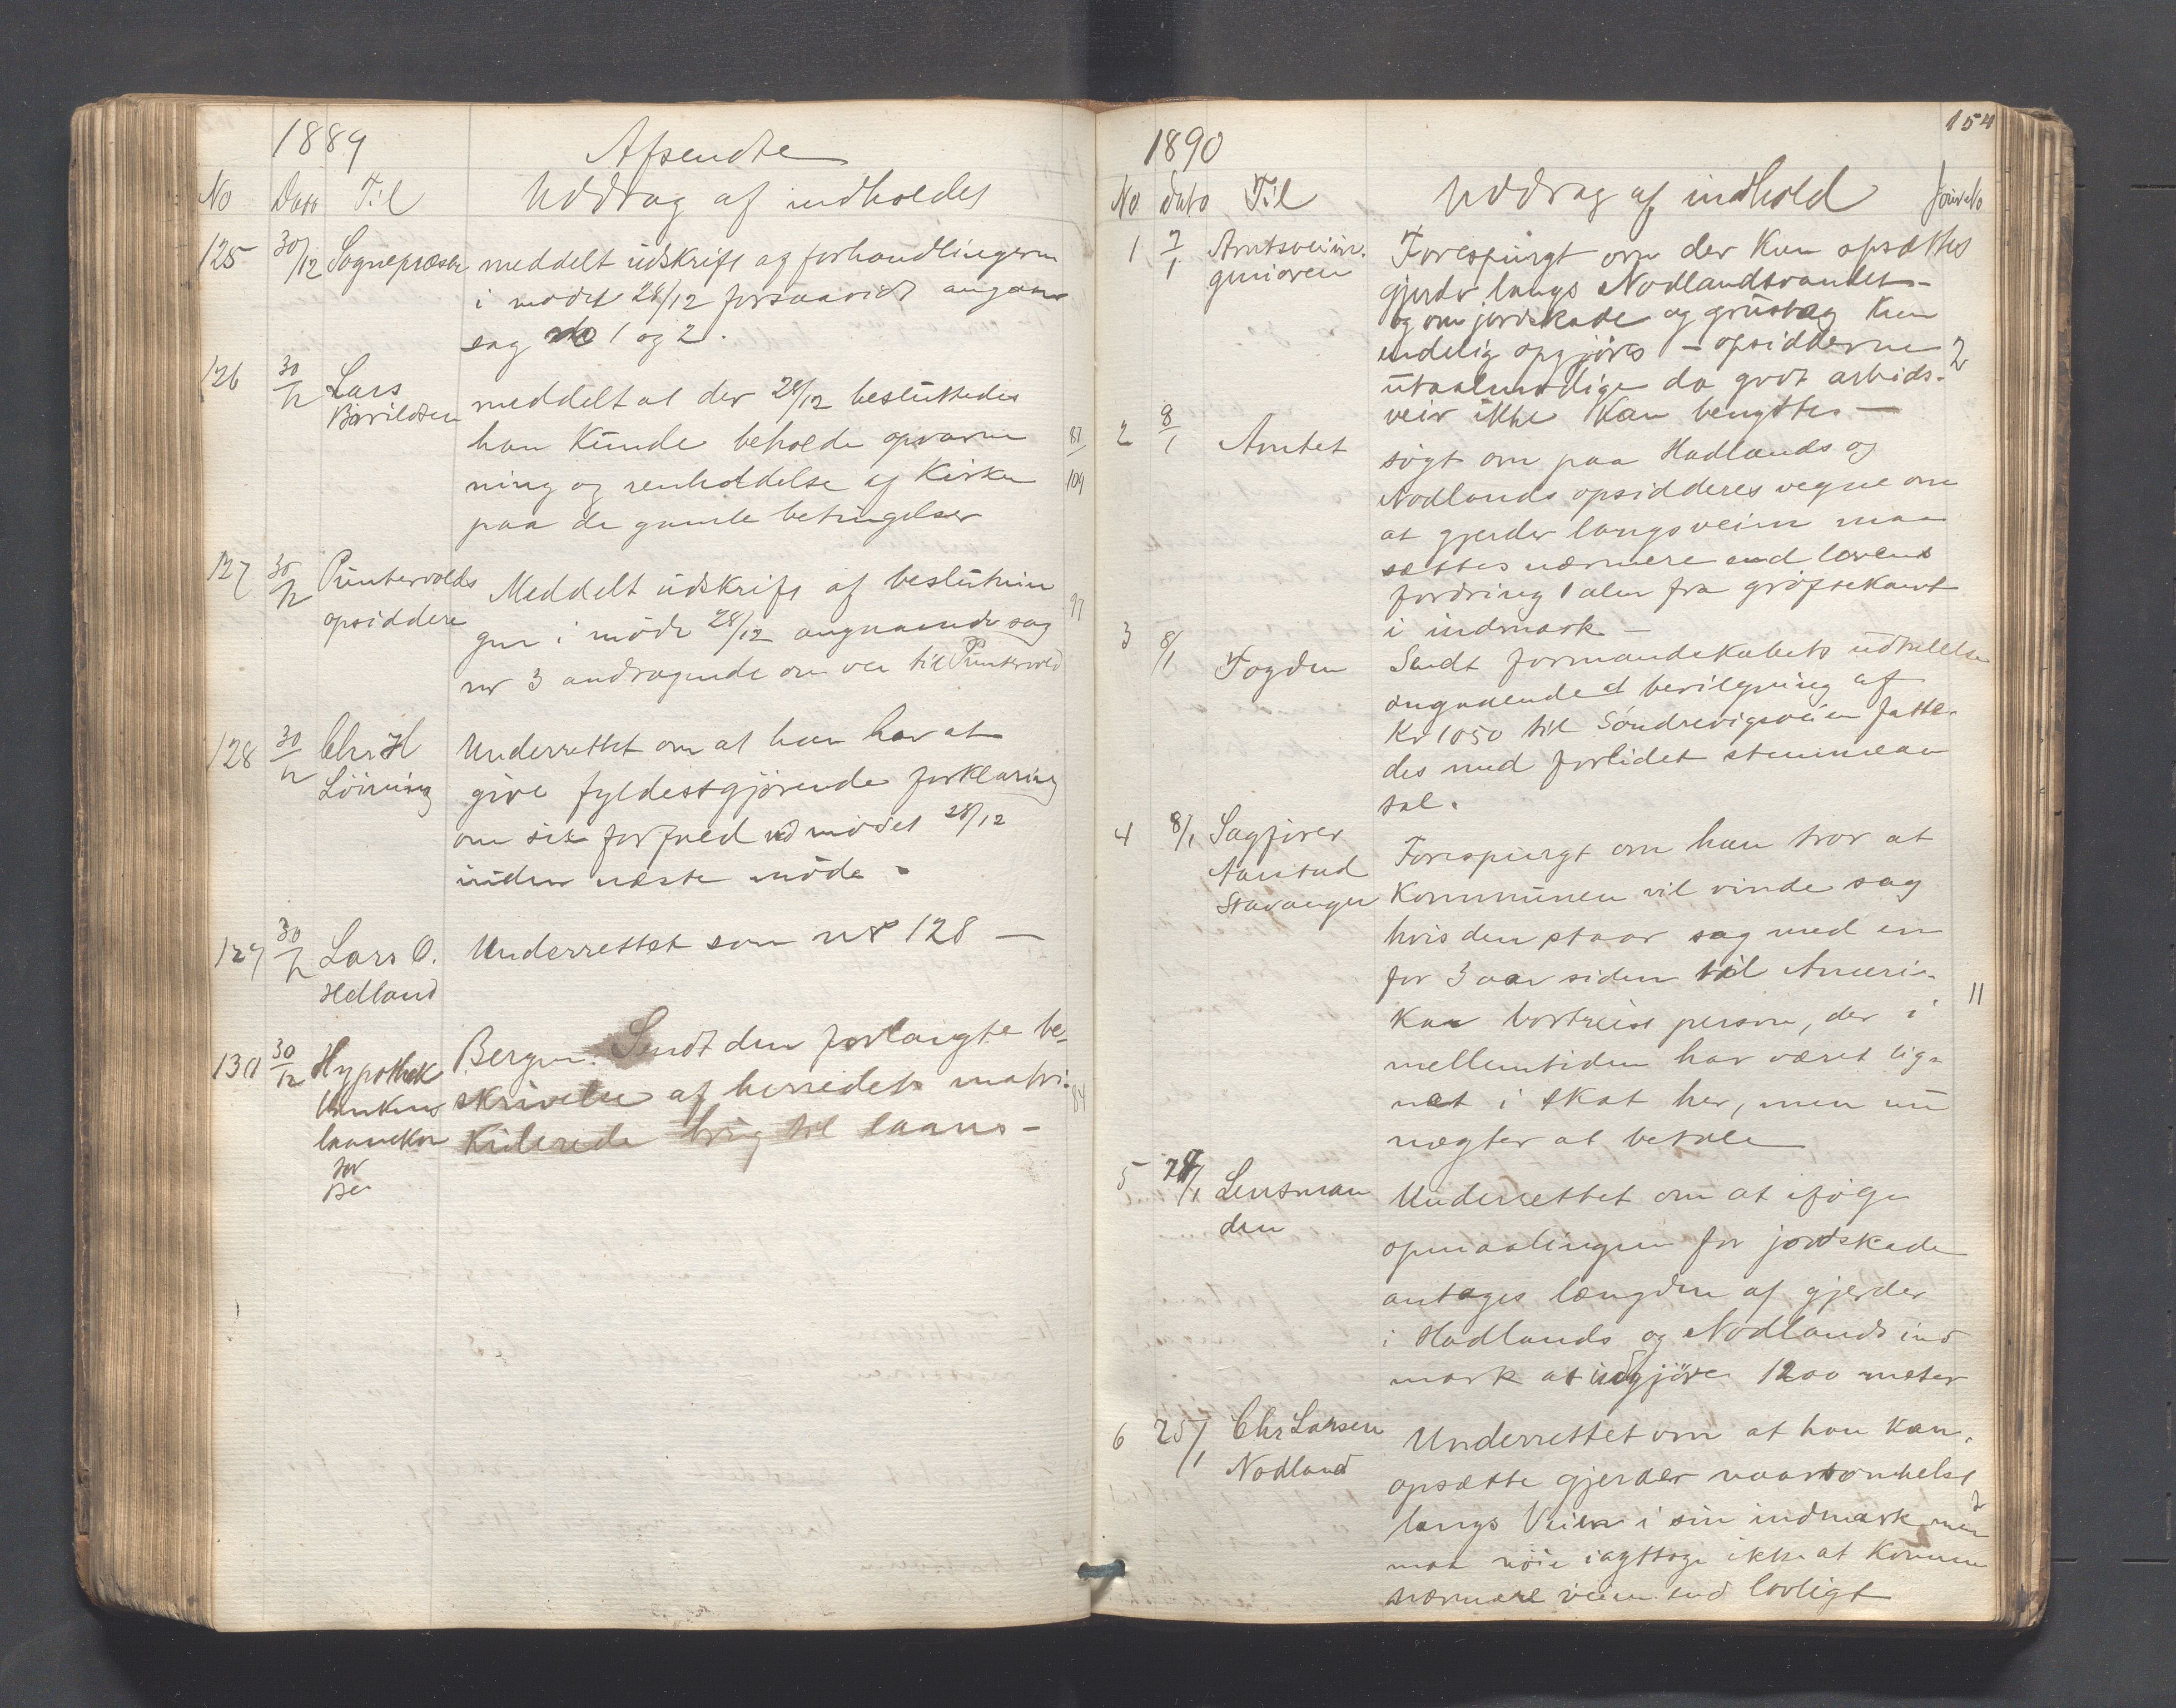 1889
Afsendte
No Dato Til Uddrag af indholdet
125 30/12 Sognepræsten meddelt udskrift af forhandlingerne
i mødet 28/12 forsaavidt angaar
sag No 1 og 2.
126 30/12 Lars meddelt at der 28/12 besluttedes
han kunde beholde opvarm
87/104
ning og renholdelse af Kirken
paa de gamle betingelser
127 30/12 Puntervolds opsiddere
Meddelt udskrift af beslutnin
gen i møde 28/12 angaaende sag
97
nr 3 andragende om vei til Puntervold
128 30/12 Chr H Underrettet om at han har at
Löining give fyldestgjörende forklaring
om sit forfald ved mödet 28/12
inden næste möde.
129 30/12 Lars O. Underrettet som nr 128 —
Hetland
130 30/12 Hypothek Bergen. Sendt den forlangte be-
bankens skrivelse af herredets matri-
84
kulerede brug til laans-
1890
154
No Dato Til Uddrag af indhold JourNo
1 7/1 Amtsveiin- Forespurgt om der kan opsættes
geniøren gjerder langs Nodlandsvandet-
og om jordskade og grustag kan
endelig opgjöres - opsidderne 2
utaalmodige da godt arbids-
veir ikke kan benyttes —
2 8/1 Amtet søgt om paa Hadlands og
Nodlands opsidderes vegne om
at gjerder langs veien maa
sættes nærmere end lovens
fordring 1 alen fra gröftekant
i indmark —
3 8/1 Fogden Sendt formandskabets udtalelse
angaaende at bevilgning af
Kr 1050 til Söndrevigsveien fatte-
des med forlidet stemmean
tal.
4 8/1 Sagfører Forespurgt om han tror at
Aanstad Kommunen vil vinde sag
Stavanger
hvis den staar sag med en
for 3 aar siden til Ameri-
11
ka bortreist person, der i
mellemtiden har været lig-
net i skat her, men nu
nægter at betale
5 Lensman Underrettet om at iføge
den
opmaalingen for jordskade
antages længden af gjerder
i Hadlands og Nodlands ind
mark at udgjöre 1200 meter
6 25/1 Chr Larsen Underrettet om at han kan
Nodland opsætte gjerder naarsomhelst
2
langs Veien i sin indmark men
maa nöie iagttage ikke at komme
nærmere veien end lovligt